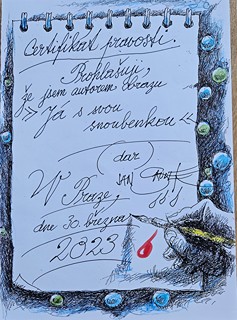 Certifikát pravosti.
Prohlašuji,
že jsem autorem obrazu
„Já s svou
snoubenkou“
(dar)
V Praze, JAN
dne 30. března
2023